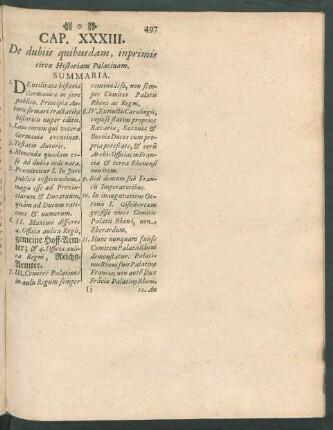 497
CAP. XXXIII.
De dubiis quibusdam, inprimis
circa Historiam Palatinam.
SUMMARIA.
1. DE utilitate historiæ
Germanicæ in jure
publico. Principia Au-
toris firmari tractatibus
historicis nuper editis.
2. Laus eorum qui vetera
Germaniæ excutiunt.
3. Testatio Autoris.
4. Monenda quædam cir-
ca ad dubia inde nata.
5. Præmittitur I. In jure
publico respiciendum
magis esse ad Provin-
ciarum & Ducatuum,
quàm ad Ducum ratio-
nes & numerum.
6. II. Maximè differre
4. Officia aulica Regis,
gemeine Hoff-Aem-
ter; & 4. Officia auli-
ca Regni, Reichs-
Aemter.
7. III. Comites Palatinos
in aula Regum semper
continuâsse, non sem-
per Comites Palatii
Rheni ac Regni.
8. IV. Extinctis Carolingis,
cœpisse statim proprios
Bavariæ, Saxoniæ &
Sueviæ Duces cum pro-
pria potestate, & verè
Archi-Officia; in Fran-
cia & terra Rhenensi
non item.
9. Sed demum sub Fran-
cis Imperatoribus.
10. In inauguratione Ot-
tonis I. Officiorum
gessisse vices Comitis
Palatii Rheni, non
Eberardum.
11. Hunc nunquam fuisse
Comitem Palatii Rheni
demonstratur. Palati-
nus Rheni fuit Palatinus
Franciæ; non autē Dux
Frāciæ Palatinus Rheni.
Ii
12. An